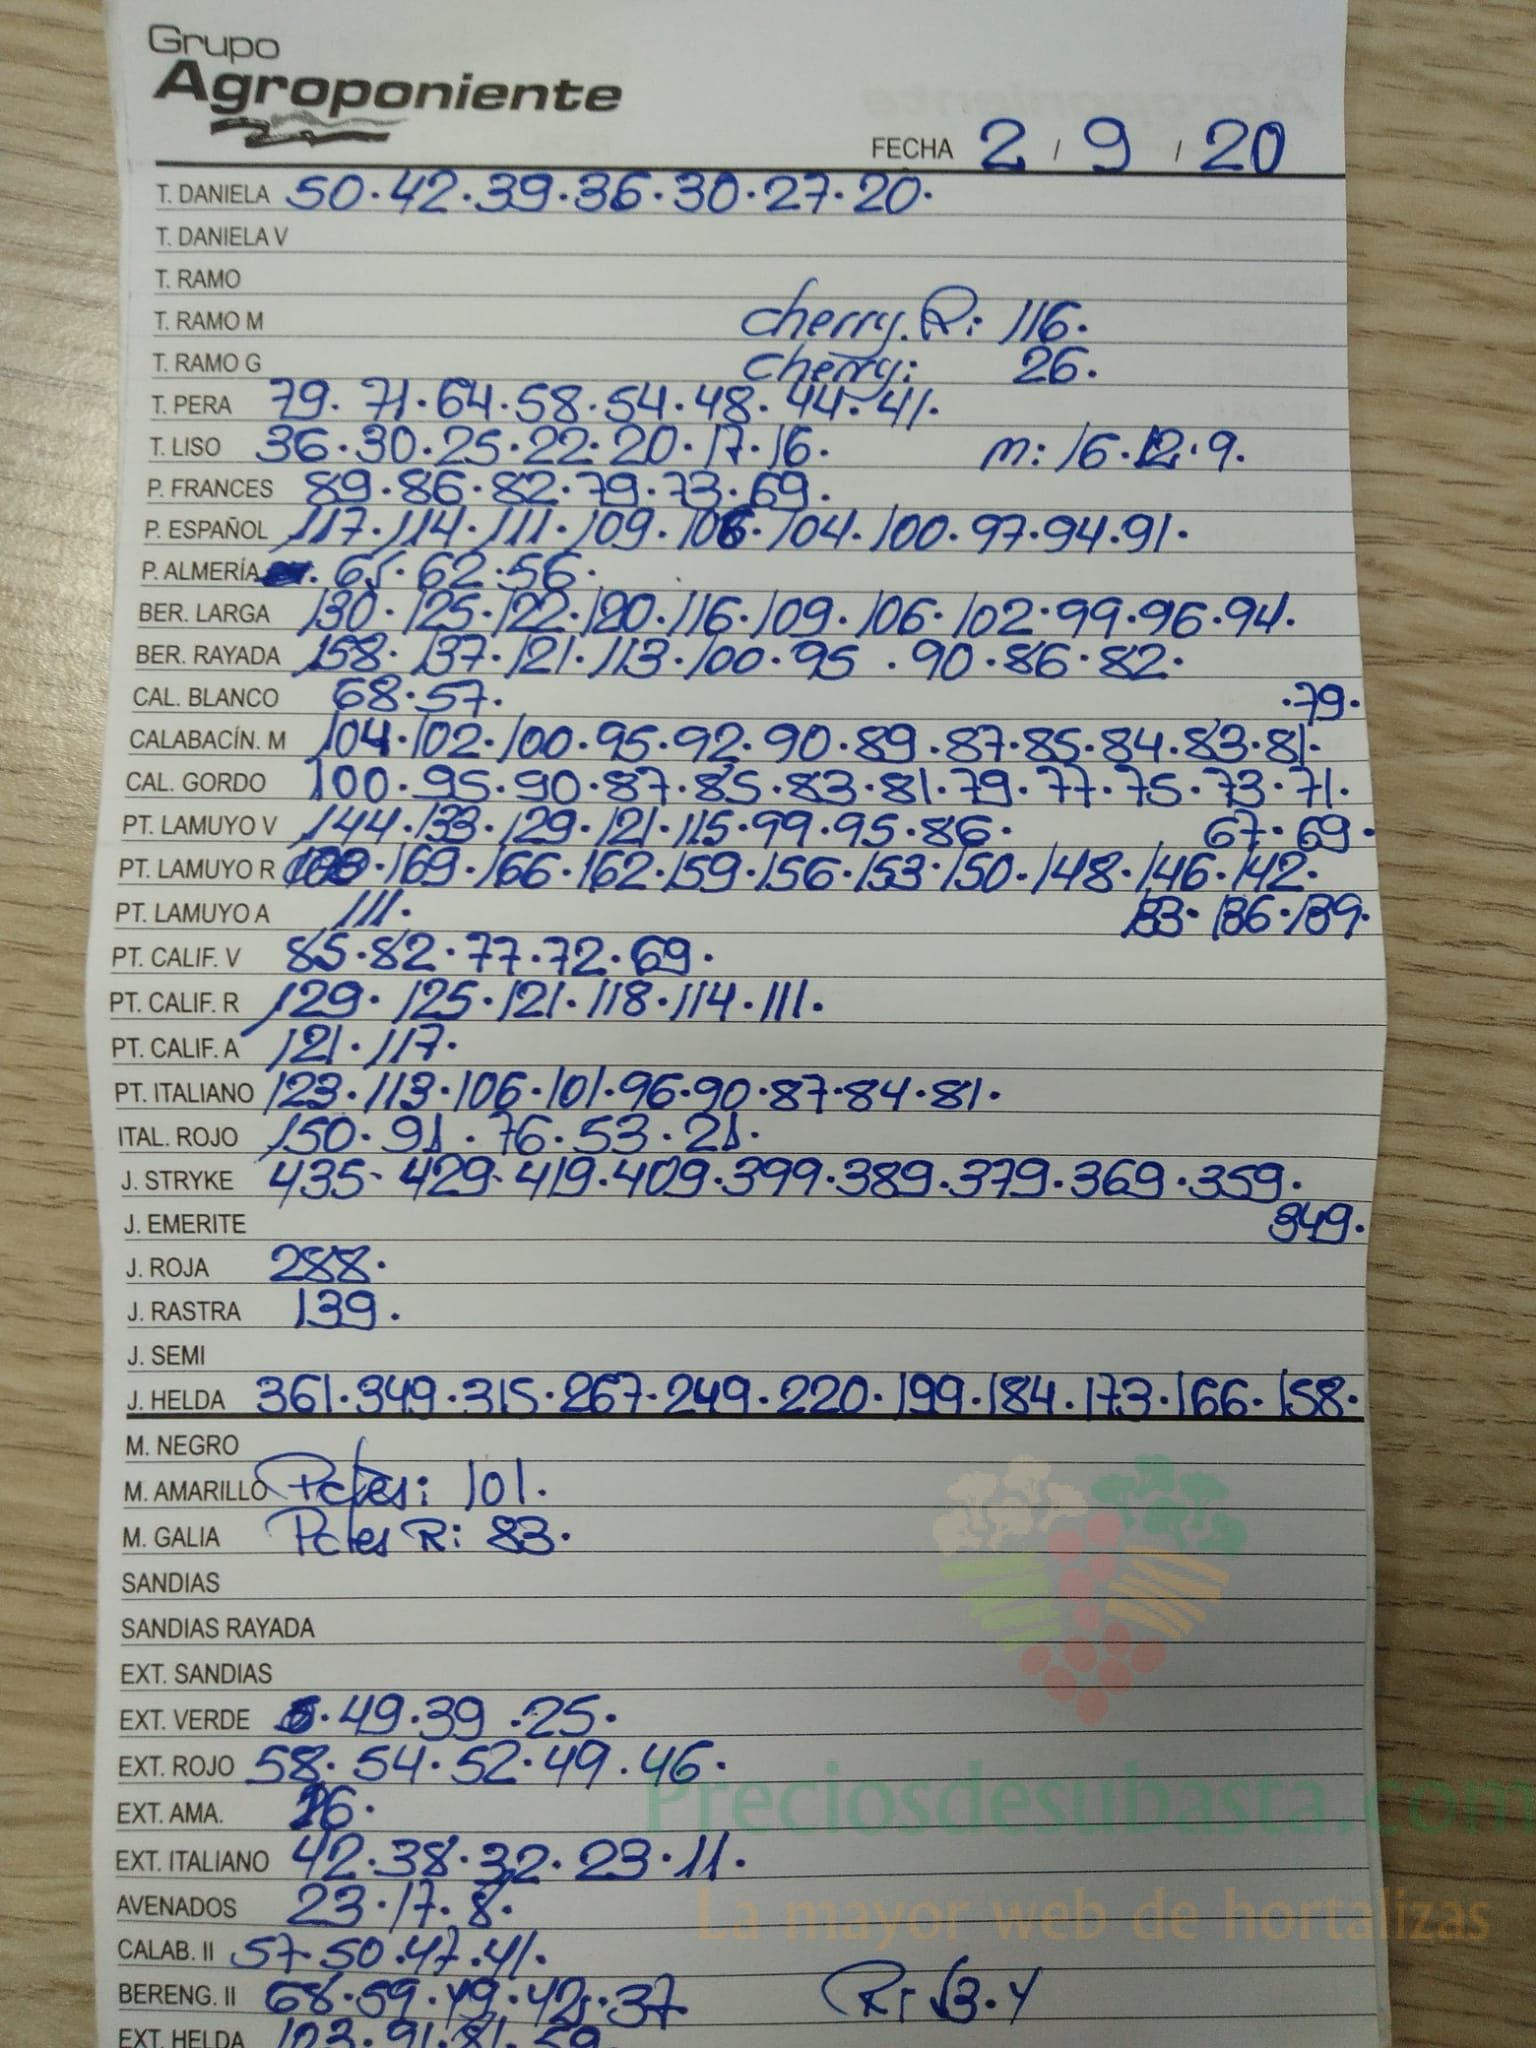 Grupo
Agroponiente
FECHA 2 / 9 / 20
T. DANIELA 50.42.39.36.30.27.20.
T. DANIELA V
T. RAMO
T. RAMO M cherry.R: 116.
T. RAMO G cherry: 26.
T. PERA 79.71.64.58.54.48.44.41.
T. LISO 36.30.25.22.20.17.16. m: 16.12.9.
P. FRANCES 89.86.82.79.73.69.
P. ESPAÑOL 117.114.111.109.106.104.100.97.94.91.
P. ALMERÍA 65.62.56.
BER. LARGA 130.125.122.120.116.109.106.102.99.96.94.
BER. RAYADA 158.137.121.113.100.95.90.86.82.
CAL. BLANCO 68.57. .79.
CALABACÍN. M 104.102.100.95.92.90.89.87.85.84.83.81.
CAL. GORDO 100.95.90.87.85.83.81.79.77.75.73.71.
PT. LAMUYO V 144.133.129.121.115.99.95.86. 67.69.
PT. LAMUYO R .169.166.162.159.156.153.150.148.146.142.
PT. LAMUYO A 111. 133.136.139.
PT. CALIF. V 85.82.77.72.69.
PT. CALIF. R 129.125.121.118.114.111.
PT. CALIF. A 121.117.
PT. ITALIANO 123.113.106.101.96.90.87.84.81.
ITAL. ROJO 150.91.76.53.21.
J. STRYKE 435-429.419.409.399.389.379.369.359.
J. EMERITE 349.
J. ROJA 288.
J. RASTRA 139.
J. SEMI
J. HELDA 361.349.315.267.249.220.199.184.173.166.158.
M. NEGRO
M. AMARILLO Pctes: 101.
M. GALIA Pctes R: 83.
SANDIAS
SANDIAS RAYADA
EXT. SANDIAS
EXT. VERDE .49.39.25.
EXT. ROJO 58.54.52.49.46.
Preciosdesubasta.com
EXT. AMA. 26.
EXT. ITALIANO 42.38.32.23.11.
AVENADOS 23.17.8.
La mayor web de hortalizas
CALAB. II 57.50.47.41.
BERENG. II 68.59.49.42.37 R:
EXT. HELDA 103.91.81.59.